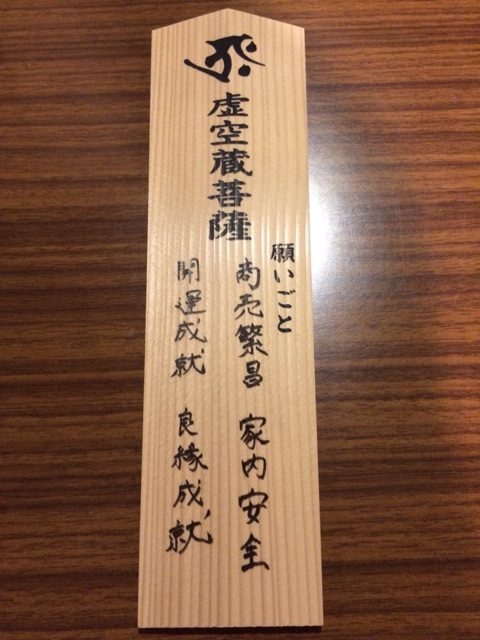 𑖝𑖿𑖨𑖯𑖾
虚空蔵菩薩
願いごと
商売繁昌 家内安全
開運成就 良縁成就